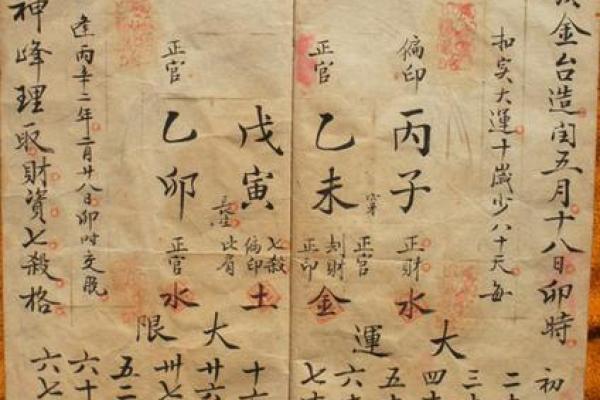 金台造閏五月十八日卯時
扣实大運十歲少八十天每
偏印
丙子
正財
水
正官
乙未
穿
正官
刦財
正印
金
戊寅
七殺
偏印
比肩
土
正官
乙卯
正官
水
逢丙辛二年二月廿八日卯时交脱
神峰理取財資七殺格
大運
初
二十
三十
四十
五十
六十
七十
大限
十六
廿六
卅七
五二
六十
六七